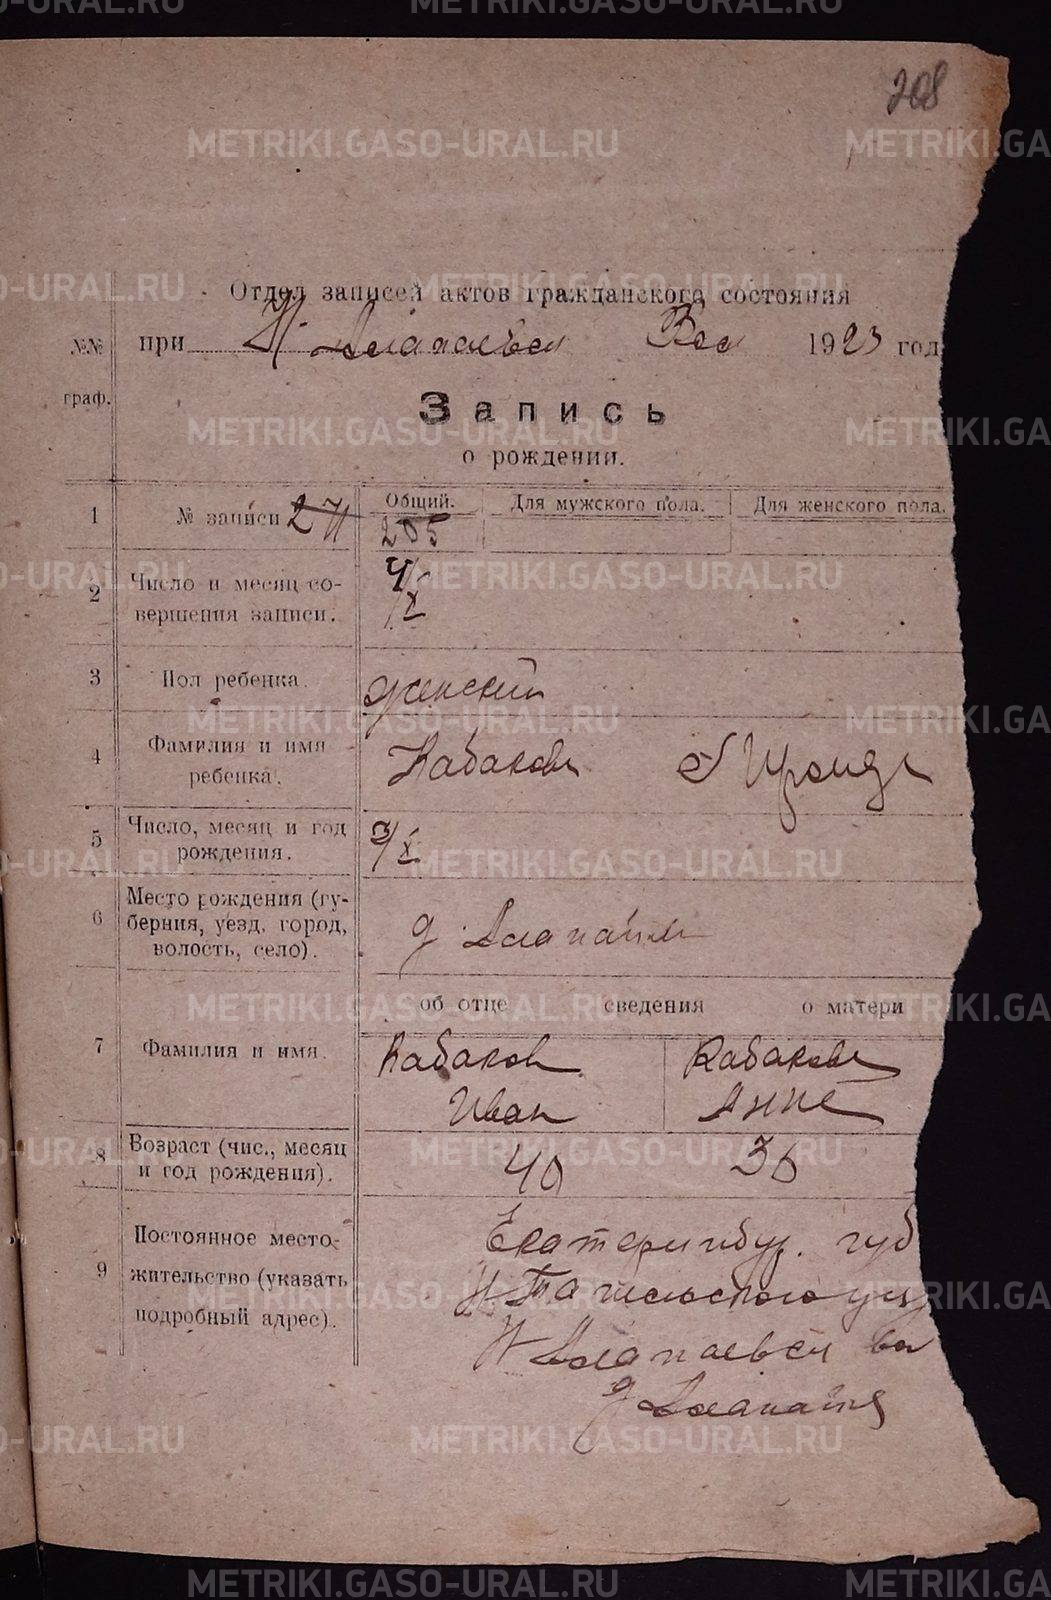 208
Отдел записей актов гражданского состояния
при Н. Алапаевск Вол 1923 год
№№ граф.
Запись
о рождении.
1 № записи 271 Общий. Для мужского пола. Для женского пола.
205
2 Число и месяц со-
вершения записи. 4/X
3 Пол ребенка. женский
4 Фамилия и имя
ребенка. Кабакова Ираида
5 Число, месяц и год
рождения. 3/X
6 Место рождения (гу-
берния, уезд, город,
волость, село). д. Алапаиха
об отце сведения о матери
7 Фамилия и имя. Кабаков Кабакова
Иван Анна
8 Возраст (чис., месяц
и год рождения). 40 36
9 Постоянное место-
жительство (указать
подробный адрес).
Екатеринбур. губ
Н Тагильского уез
Н Алапаевск вол
д Алапаиха
METRIKI.GASO-URAL.RU